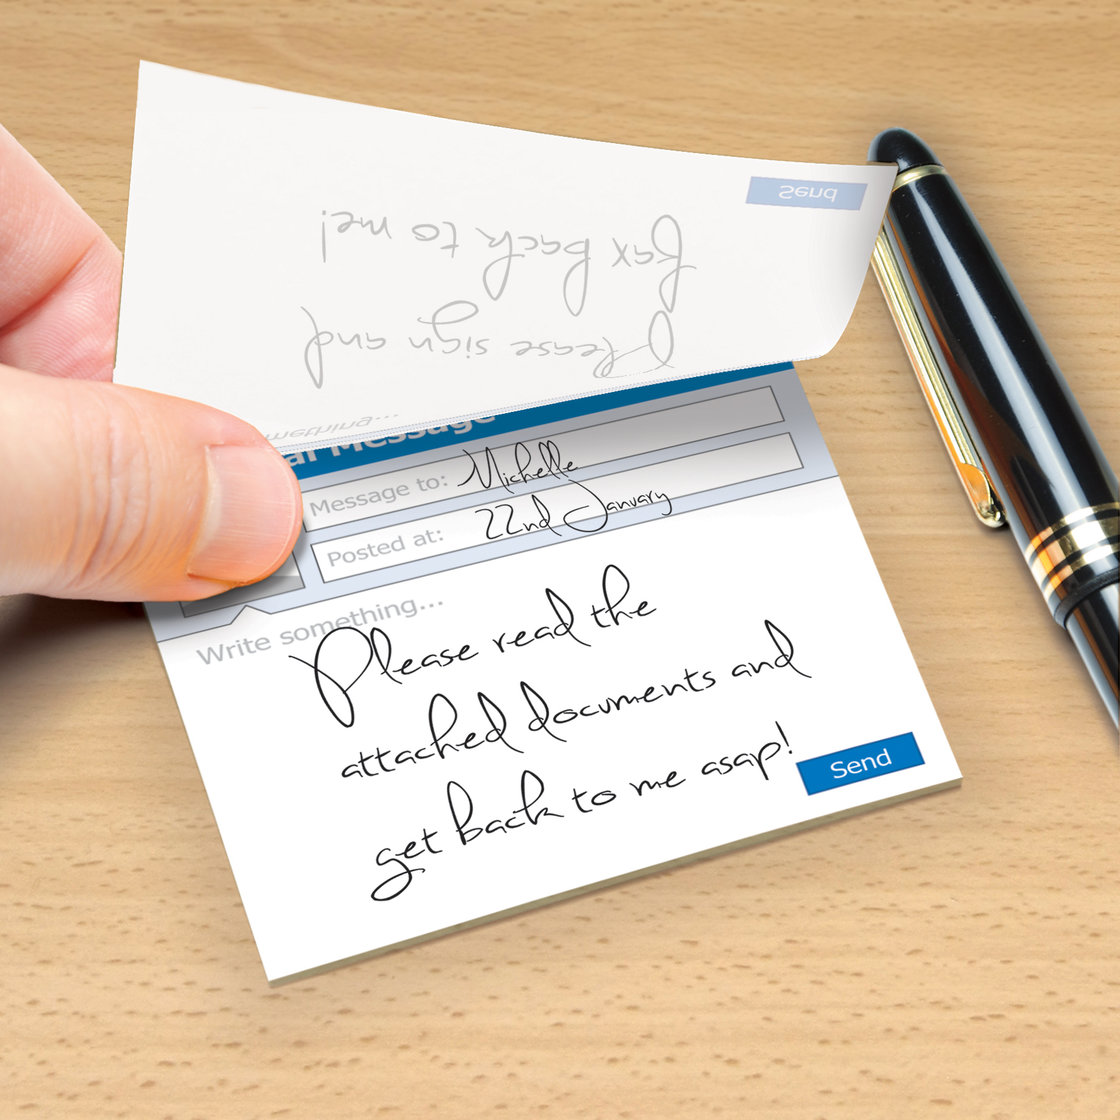 Send
fax back to me!
Please sign and
mething...
al Message
Message to: Michelle
Posted at: 22nd January
Write something...
Please read the
attached documents and
get back to me asap!
Send